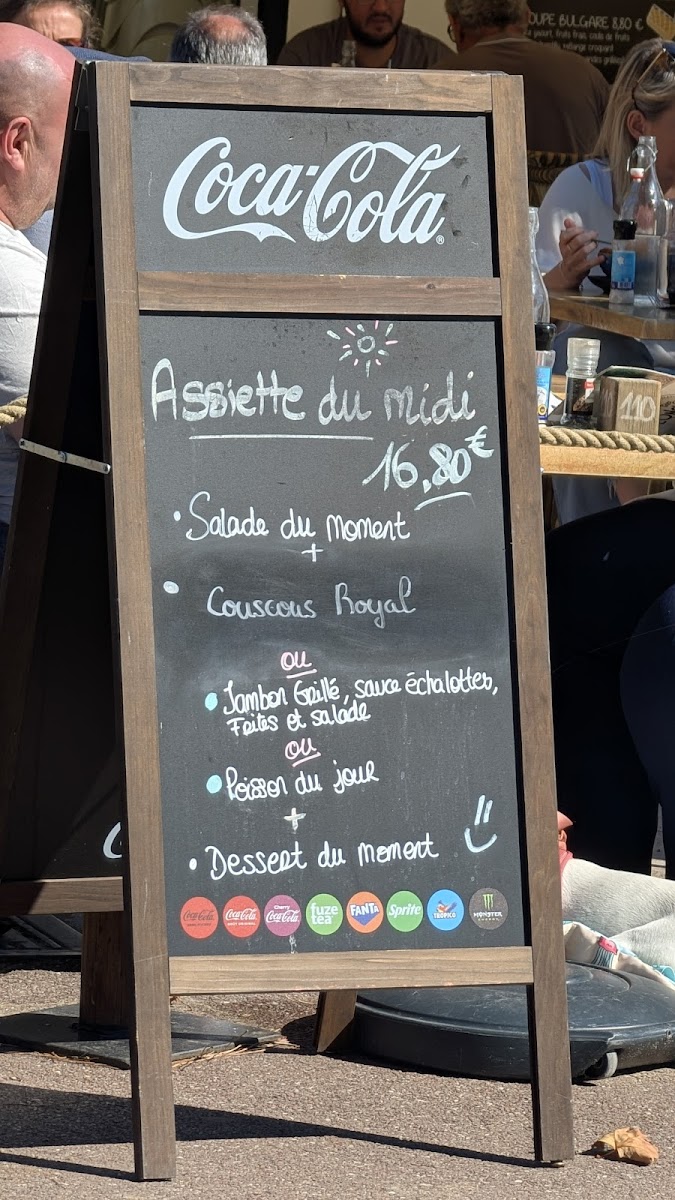 OUPE BULGARE 8,80 €
Coca-Cola
Assiette du midi
16,80€
• Salade du Moment
+
• Couscous Royal
ou
• Jambon Grillé, sauce échalottes,
Frites et salade
ou
• Poisson du jour
+
• Dessert du Moment
Coca-Cola
Coca-Cola
Cherry
Coca-Cola
fuze tea
FANTA
Sprite
TROPICO
MONSTER
110